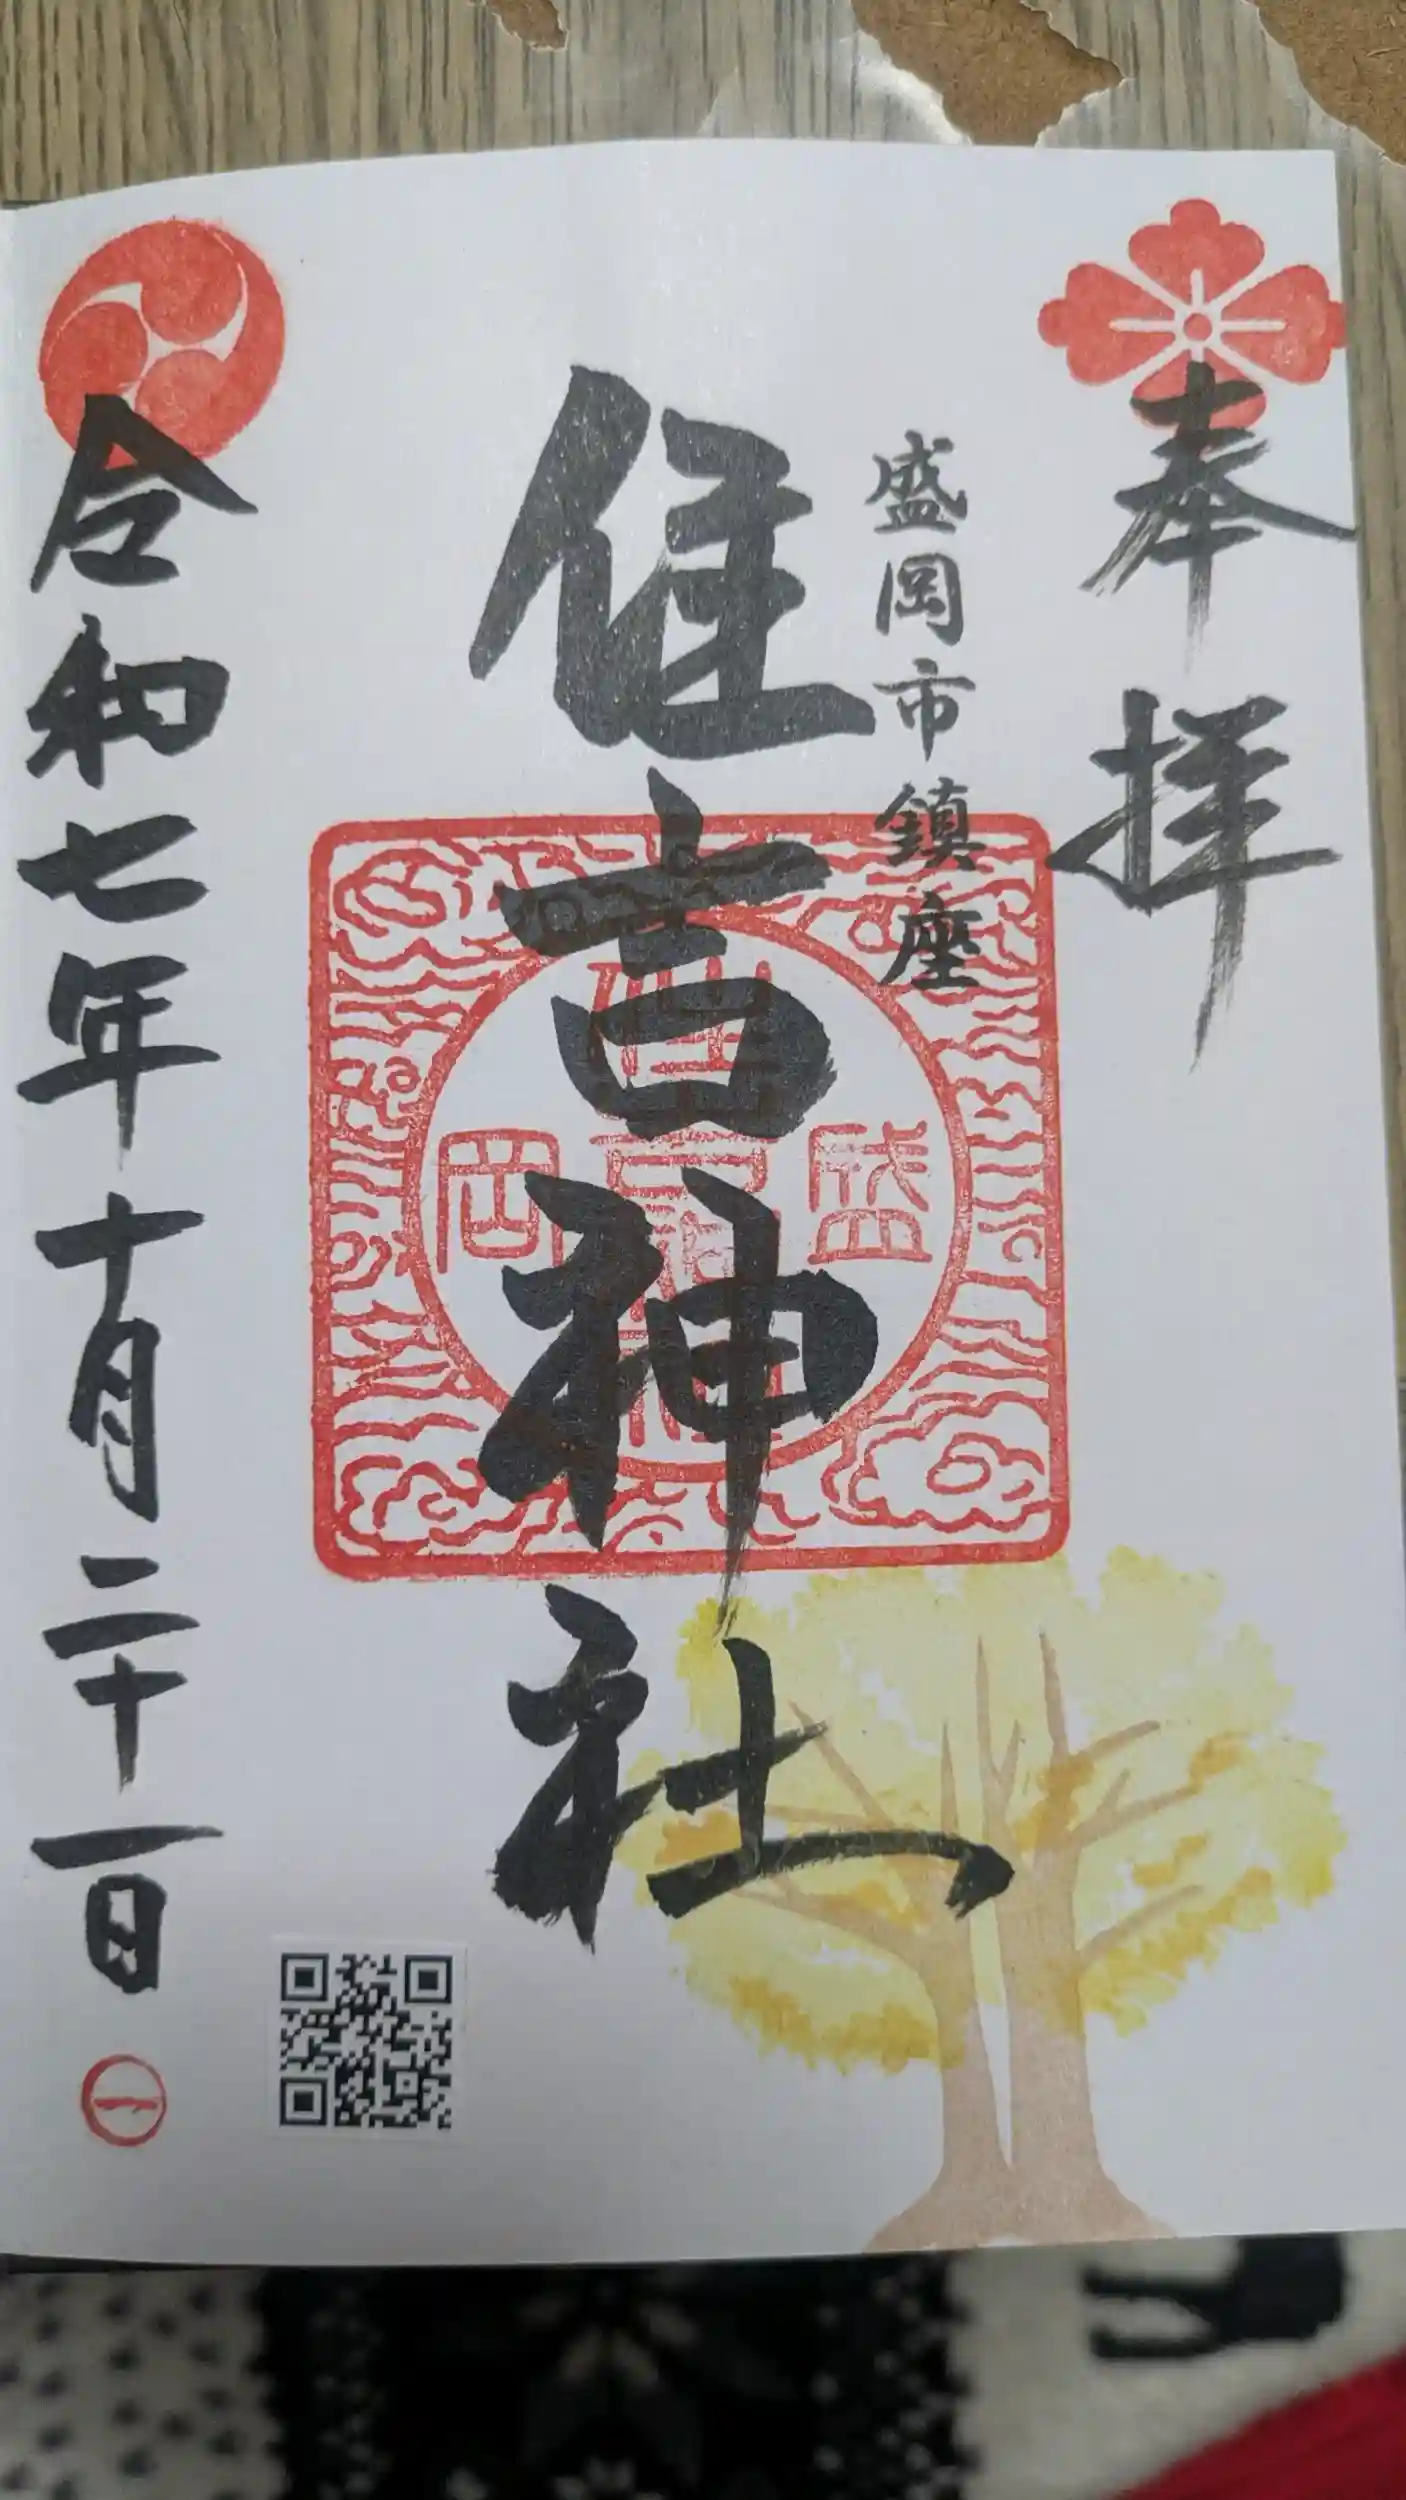 奉拝
盛岡市鎮座
住吉神社
盛岡
令和七年十月二十一日
一